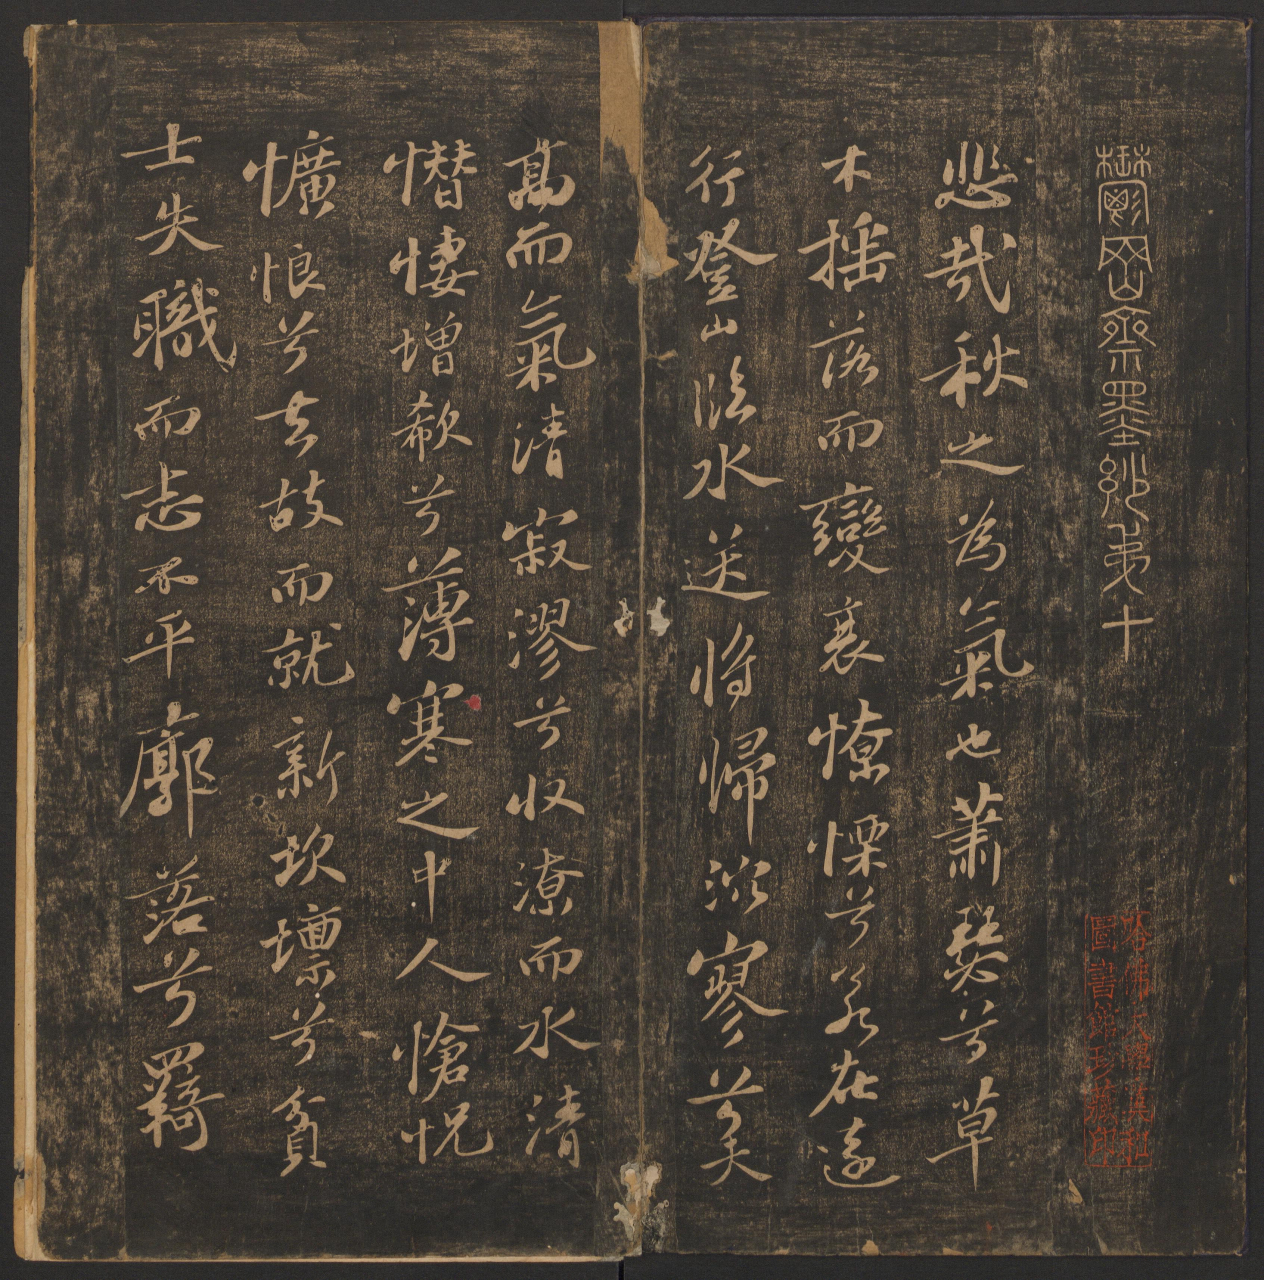 鬱岡齋墨妙第十
哈佛大學漢和
圖書館珍藏印
悲哉秋之為氣也蕭瑟兮草
木搖落而變衰憭慄兮若在遠
行登山臨水送將歸泬寥兮天
高而氣清寂漻兮收潦而水清
憯悽增欷兮薄寒之中人愴怳
懭悢兮去故而就新坎壈兮貧
士失職而志不平廓落兮羇